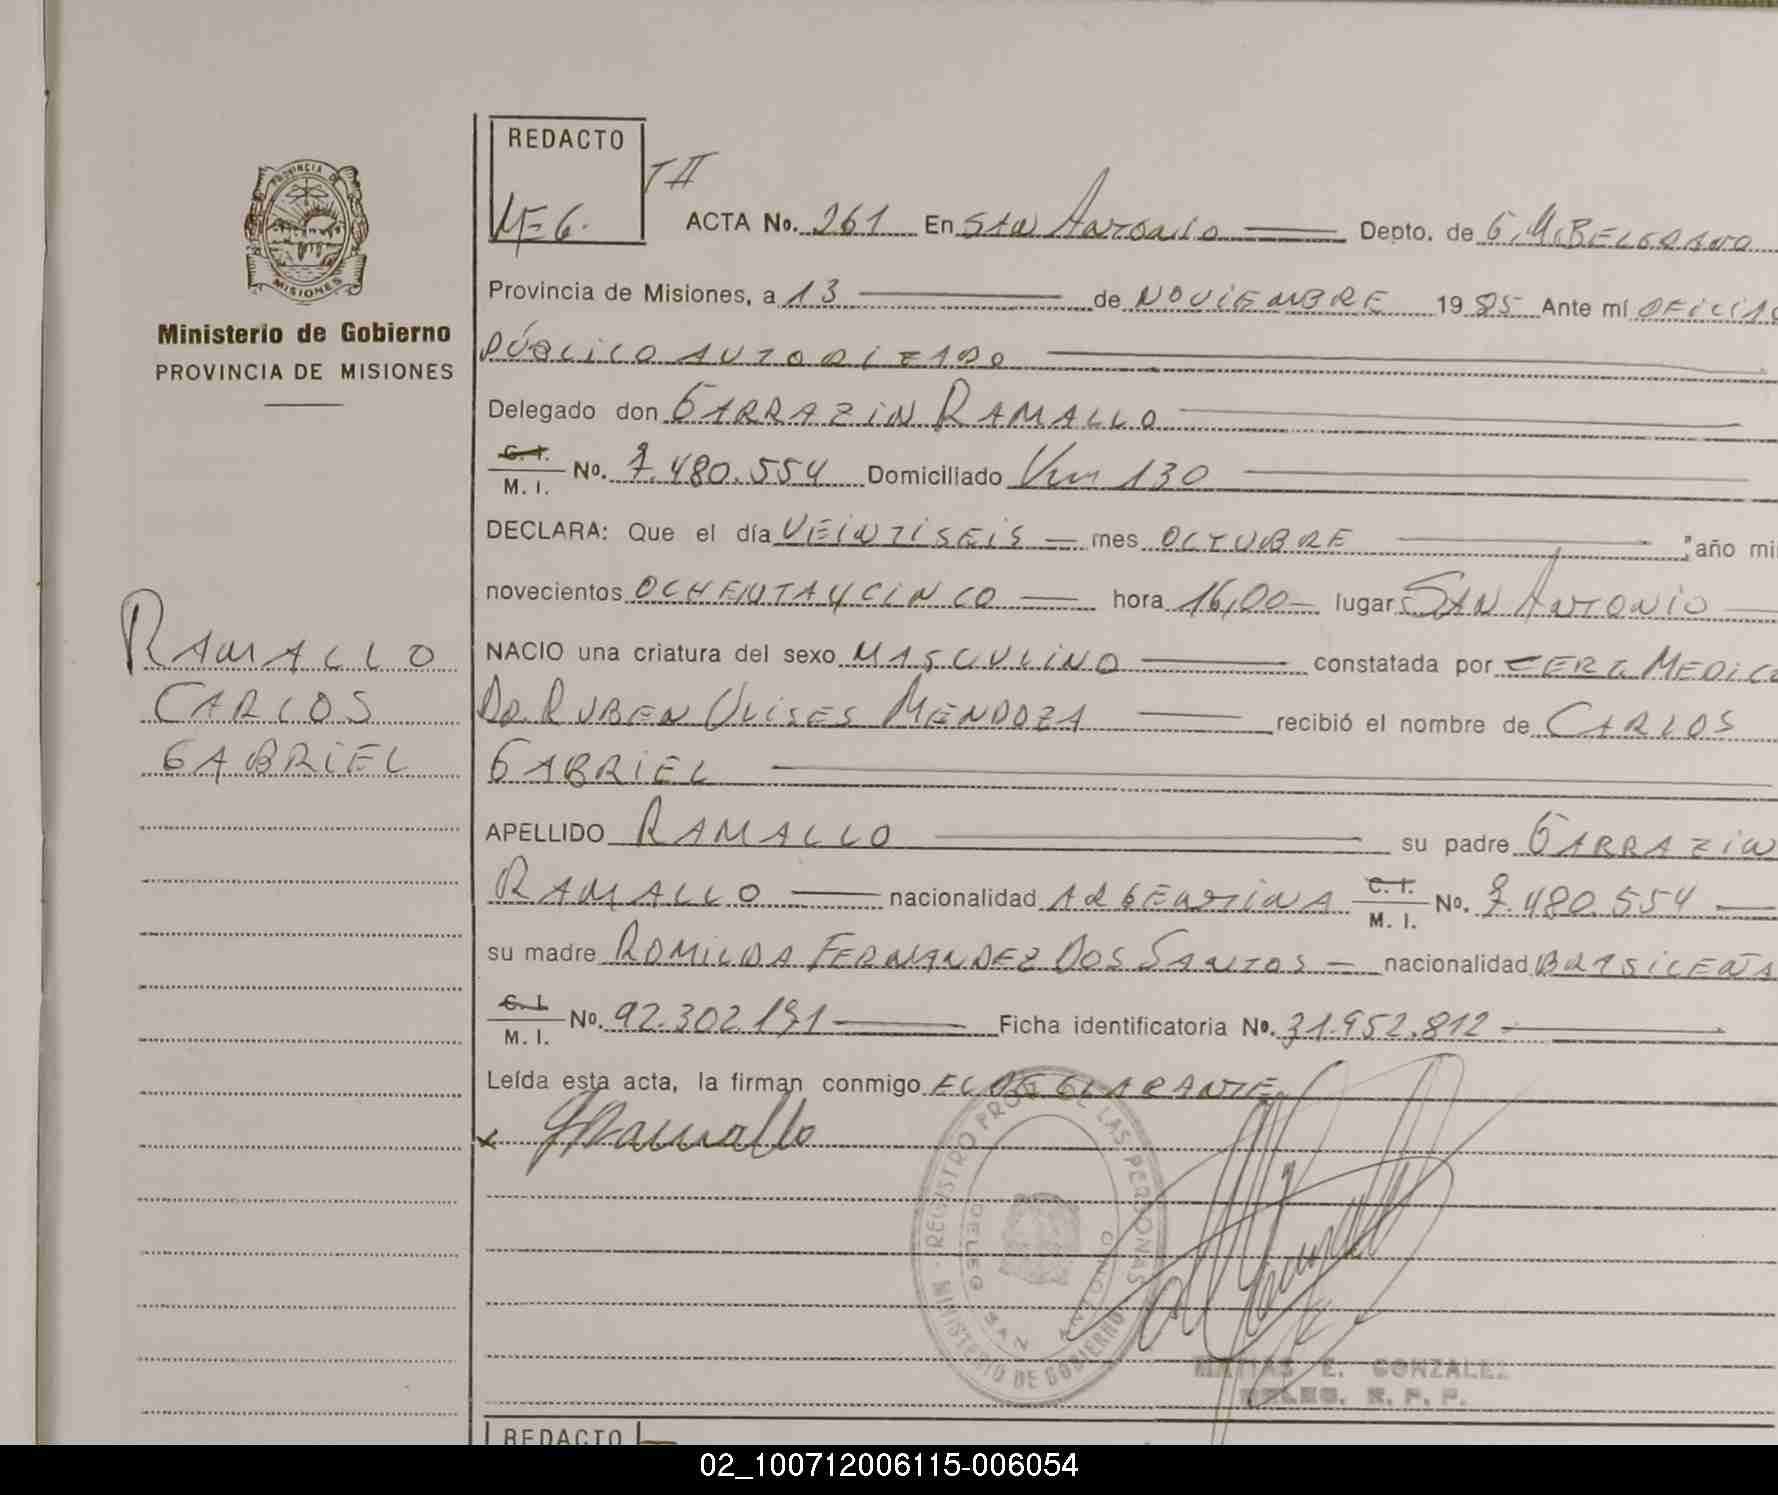 REDACTO
M=G.
T II
ACTA No. 261 En San Antonio Depto. de G.M.BELGRANO
PROVINCIA DE MISIONES
Ministerio de Gobierno
PROVINCIA DE MISIONES
Provincia de Misiones, a 13 de NOVIEMBRE 1985 Ante mí OFICIAL
PÚBLICO AUTORIZADO
Delegado don GARRAZIN RAMALLO
C. I. M. I. No. 7.480.554 Domiciliado Km 130
DECLARA: Que el día VEINTISEIS mes OCTUBRE año mi
novecientos OCHENTAYCINCO hora 16,00 lugar SAN ANTONIO
RAMALLO
CARLOS
GABRIEL
NACIO una criatura del sexo MASCULINO constatada por CERT. MEDICO
DR. RUBEN ULISES MENDOZA recibió el nombre de CARLOS
GABRIEL
APELLIDO RAMALLO su padre GARRAZIN
RAMALLO nacionalidad ARGENTINA C. I. M. I. No. 7.480.554
su madre ROMILDA FERNANDEZ DOS SANTOS nacionalidad BRASILEÑA
C. I. M. I. No. 92.302.191 Ficha identificatoria No. 31.952.812
Leída esta acta, la firman conmigo EL DECLARANTE
x Ramallo
MINISTERIO DE GOBIERNO - REGISTRO PROV. DE LAS PERSONAS
DELEG. SAN ANTONIO
MATIAS E. GONZALEZ
DELEG. R. P. P.
REDACTO
02_100712006115-006054